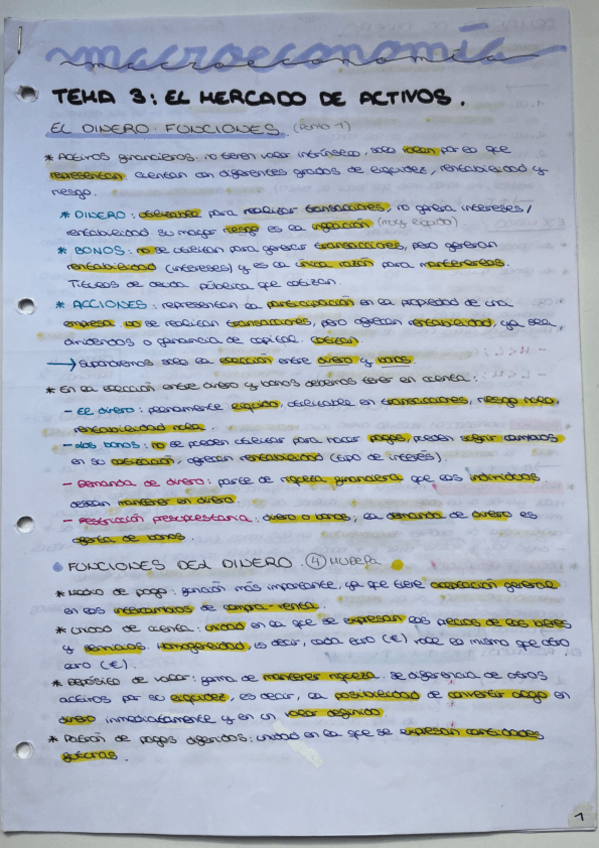 macroeconomía
TEMA 3: EL MERCADO DE ACTIVOS.
EL DINERO: FUNCIONES. (Punto 1)
* Activos financieros: no tienen valor intrínseco, solo valen por es que
representan, cuentan con diferentes grados de liquidez, rentabilidad y
riesgo.
* DINERO: utilizable para realizar transacciones, no genera intereses/
rentabilidad su mayor riesgo es la inflación (muy líquido)
* BONOS: no se utilizan para generar transacciones, pero generan
rentabilidad (intereses) y es la única razón para mantenerlos.
Títulos de deuda pública que cotizan.
* ACCIONES: representan la participación en la propiedad de una
empresa. no se realizan transacciones, pero ofrecen rentabilidad, ya sea,
dividendos o ganancia de capital. Cotizan.
→ Supondremos solo la elección entre dinero y bonos.
* En la elección entre dinero y bonos debemos tener en cuenta:
- El dinero: plenamente líquido, utilizable en transacciones, riesgo nulo,
rentabilidad nula.
- Los bonos: no se pueden utilizar para hacer pagos, pueden sufrir cambios
en su cotización, ofrecen rentabilidad (tipo de interés).
- Demanda de dinero: parte de riqueza financiera que los individuos
desean mantener en dinero.
- Restricción presupuestaria: dinero o bonos, la demanda de dinero es
oferta de bonos.
FUNCIONES DEL DINERO. (4) MUDEPA
* Medio de pago: función más importante, ya que tiene aceptación general
en los intercambios de compra-venta.
* Unidad de cuenta: unidad en la que se expresan los precios de los bienes
y servicios. Homogeneidad, es decir, cada euro (€) vale lo mismo que otro
euro (€).
* Depósito de valor: forma de mantener riqueza. Se diferencia de otros
activos por su liquidez, es decir, la posibilidad de convertir algo en
dinero inmediatamente y en un valor definido.
* Patrón de pagos diferidos: unidad en la que se expresan cantidades
futuras.
1